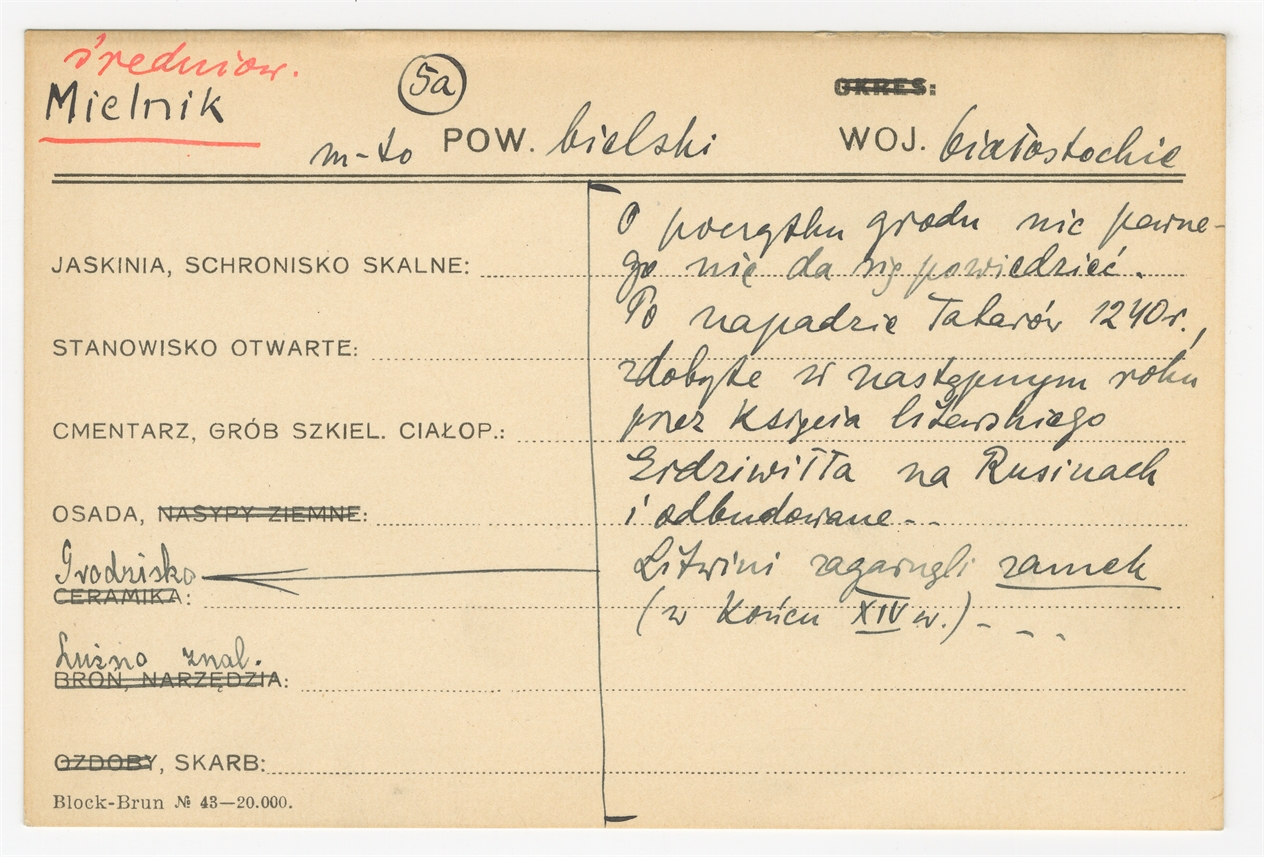 średniow.
Mielnik
5a
OKRES:
m-to POW. bielski WOJ. białostockie
JASKINIA, SCHRONISKO SKALNE:
STANOWISKO OTWARTE:
CMENTARZ, GRÓB SZKIEL. CIAŁOP.:
OSADA, NASYPY ZIEMNE:
Grodzisko
CERAMIKA:
Luźno znal.
BROŃ, NARZĘDZIA:
OZDOBY, SKARB:
Block-Brun № 43—20.000.
O początku grodu nic pewne-
go nie da się powiedzieć.
Po napadzie Tatarów 1240r.,
zdobyte w następnym roku
przez Księcia litewskiego
Erdziwiłła na Rusinach
i odbudowane - -
Litwini zagarnęli zamek
(w końcu XIV w.) - - -